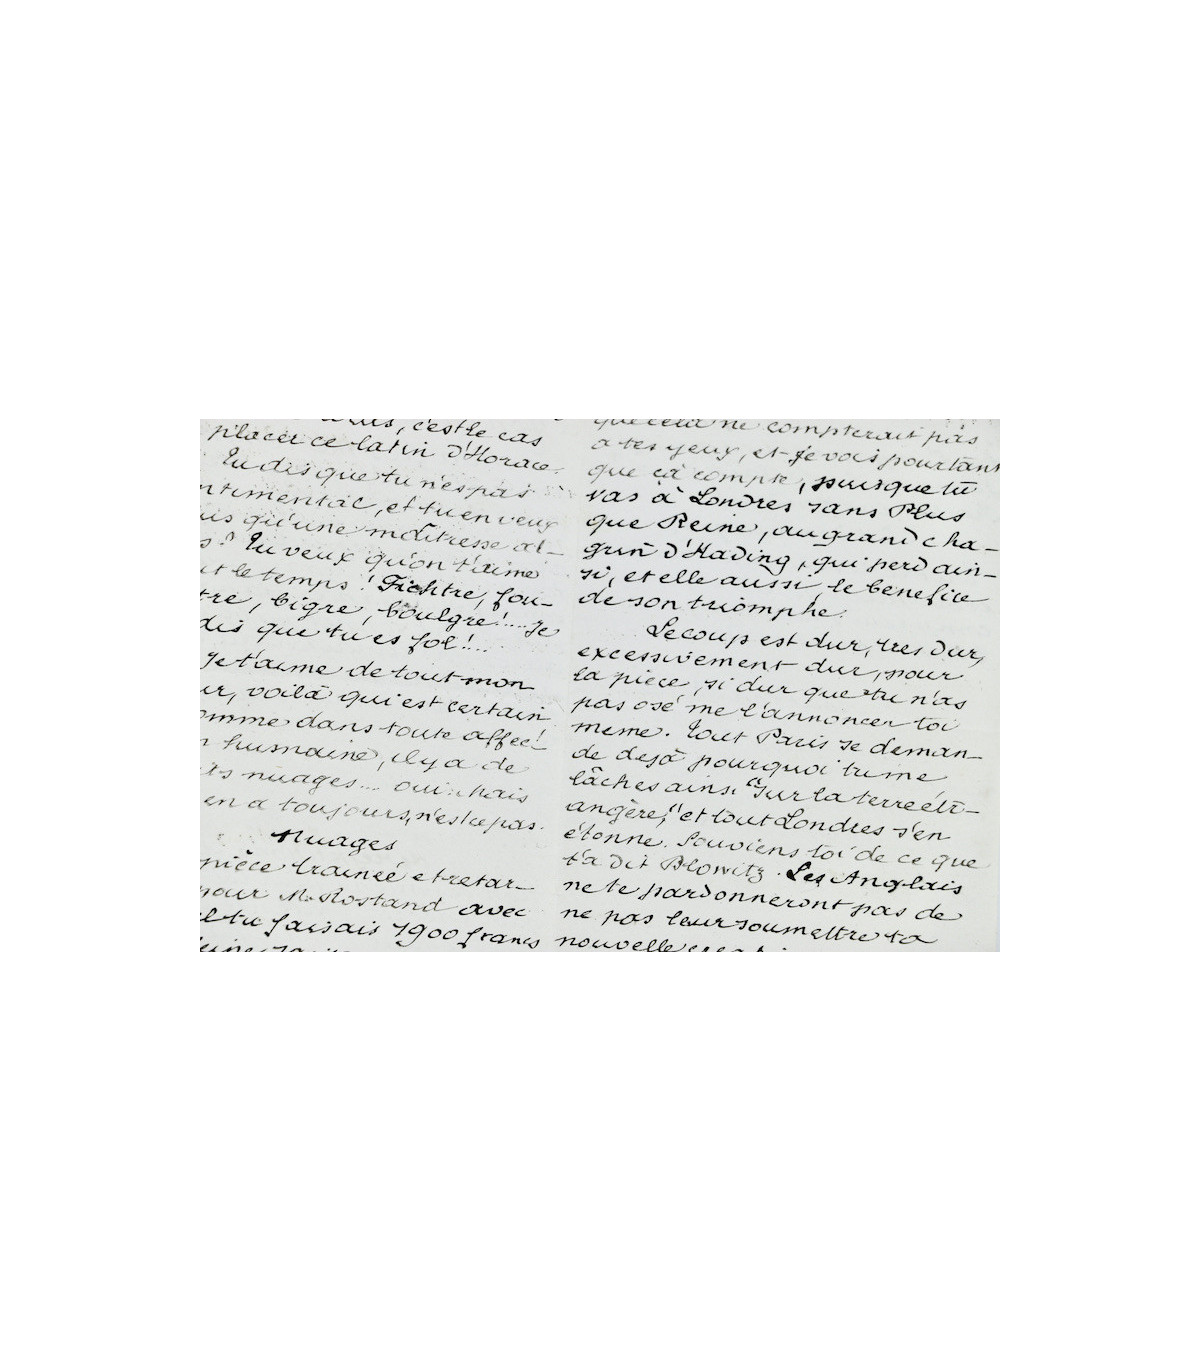 c'est le cas
placer ce latin d'Horace.
Tu dis que tu n'es pas
ntimental, et tu en veux
us qu'une maîtresse al-
s? Tu veux qu'on t'aime
ut le temps! Fichtre, fou-
tre, bigre, boulgre!.... Je
dis que tu es fol!....
Je t'aime de tout mon
ur, voilà qui est certain
omme dans toute affec!
n humaine, il y a de
its nuages... oui. Mais
en a toujours, n'est ce pas.
Nuages
pièce trainée et retar-
pour M. Rostand avec
el tu faisais 1900 francs
que cela ne compterait pas
a tes yeux, et je vois pourtant
que ça compte, puisque tu
vas à Londres sans Plus
que Reine, au grand cha-
grin d'Hading, qui perd ain-
si, et elle aussi, le benefice
de son triomphe.
Le coup est dur, tres dur,
excessivement dur, pour
la pièce, si dur que tu n'as
pas osé me l'annoncer toi
meme. Tout Paris se deman-
de dejà pourquoi tu me
lâches ainsi "sur la terre étr-
angère," et tout Londres s'en
étonne. Souviens toi de ce que
t'a dit Blowitz. Les Anglais
ne te pardonneront pas de
ne pas leur soumettre ta
nouvelle